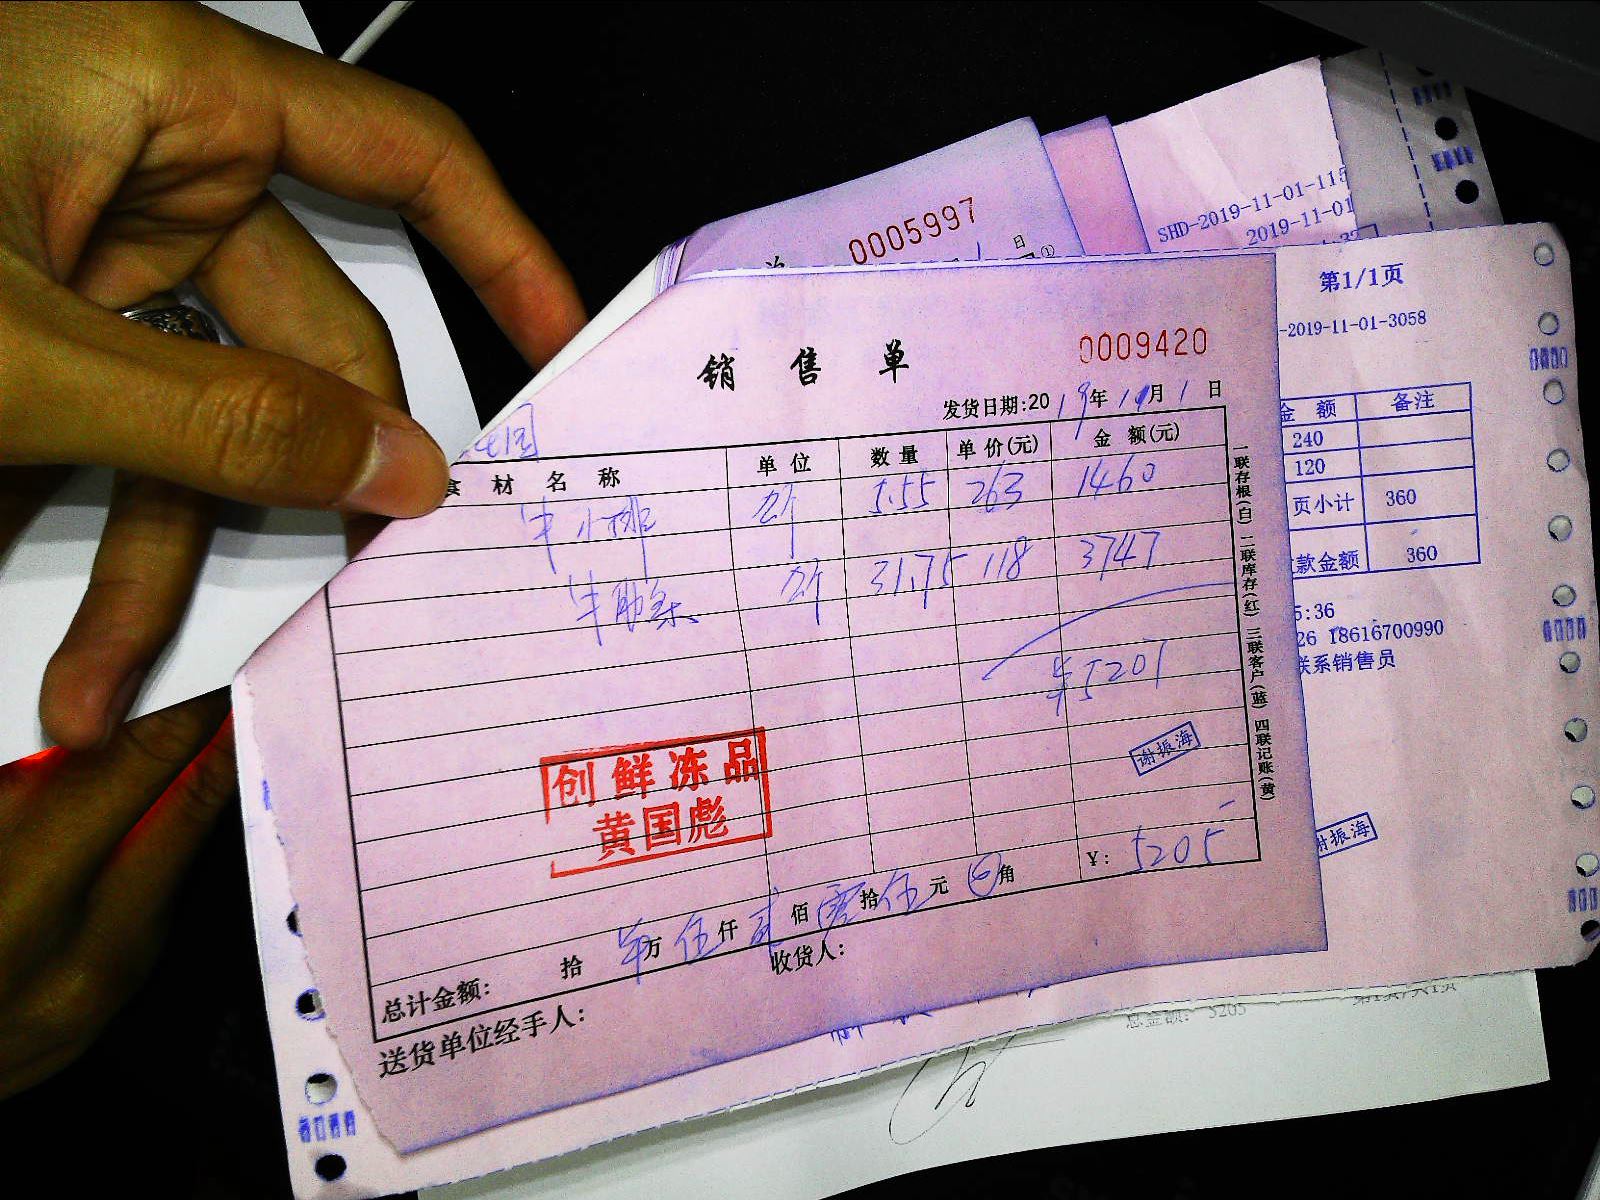 SHD-2019-11-01-115
2019-11-01
0005997
日 ①
第1/1页
-2019-11-01-3058
金 额 备注
240
120
页小计 360
款金额 360
5:36
26 18616700990
联系销售员
谢振海
销 售 单
0009420
发货日期:2019年11月1日
食 材 名 称 单 位 数 量 单 价(元) 金 额(元)
牛小排 斤 5.55 263 1460
牛肋条 斤 31.75 118 3747
¥5207
谢振海
创鲜冻品
黄国彪
总计金额: 拾 万 伍 仟 贰 佰 零 拾 伍 元 角 ¥: 5205
送货单位经手人: 收货人:
一联存根(白) 二联库存(红) 三联客户(蓝) 四联记账(黄)
总金额: 5205 第1页/共1页